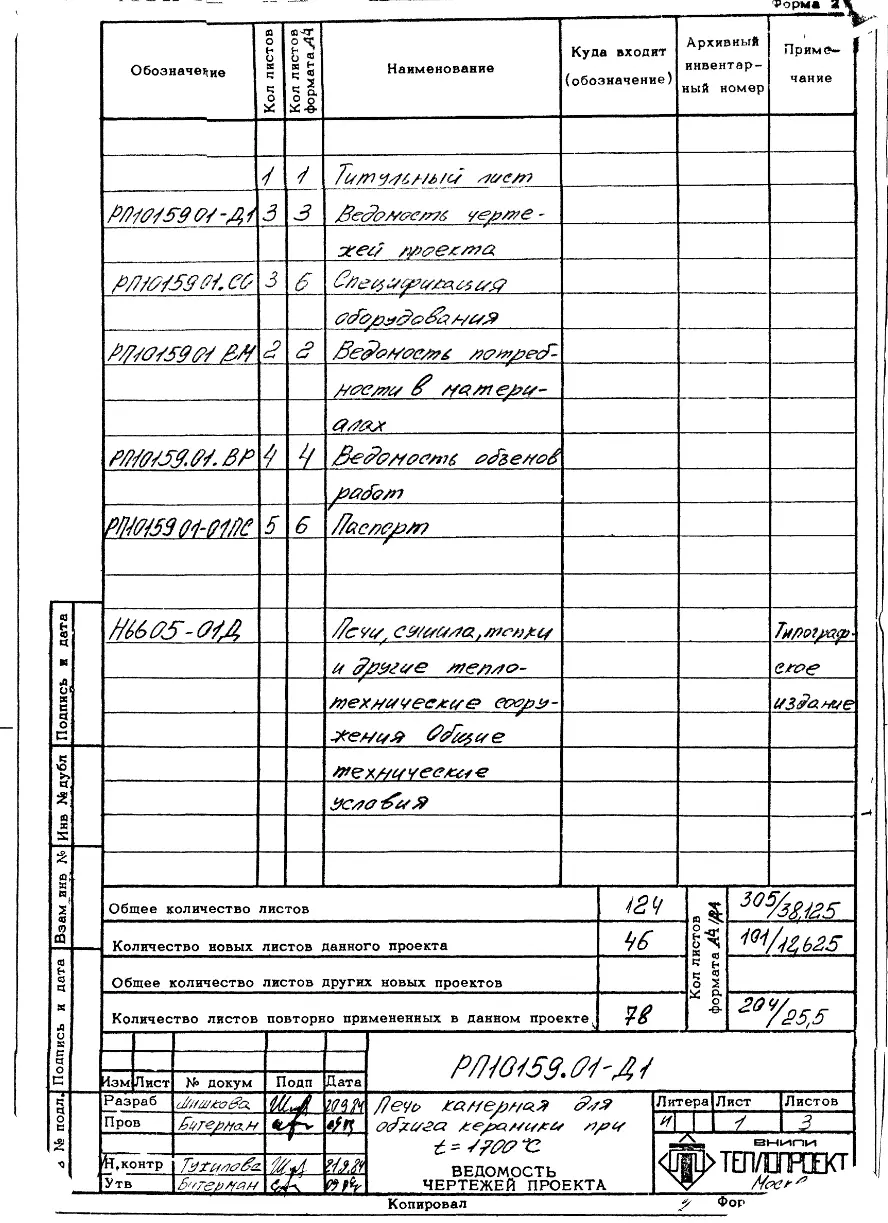 Форма 2
Обозначение | Кол листов | Кол листов формата А4 | Наименование | Куда входит (обозначение) | Архивный инвентарный номер | Примечание
1 1 Титульный лист
РП10159 01-Д1 3 3 Ведомость черте-
жей проекта
РП10159 01.СО 3 6 Спецификация
оборудования
РП10159 01 ВМ 2 2 Ведомость потреб-
ности в матери-
алах
РП10159.01.ВР 4 4 Ведомость объемов
работ
РП10159 01-01ПС 5 6 Паспорт
Н6605-01Д Печи, сушила, топки Типограф-
и другие тепло- ское
технические соору- издание
жения Общие
технические
условия
Подпись и дата
Инв № дубл
Взам инв №
Подпись и дата
№ подл.
Общее количество листов 124
Количество новых листов данного проекта 46
Общее количество листов других новых проектов
Количество листов повторно примененных в данном проекте 78
Кол листов формата А4/А1
305/38,125
101/12,625
204/25,5
РП10159.01-Д1
Изм Лист № докум Подп Дата
Разраб Шишкова 20.9.84
Пров Битерман
Н.контр Тухилова 21.9.84
Утв Битерман
Печь камерная для
обжига керамики при
t=1700°С
ВЕДОМОСТЬ
ЧЕРТЕЖЕЙ ПРОЕКТА
Литера Лист Листов
И 1 3
ВНИПИ
ТЕПЛОПРОЕКТ
Копировал
Фор